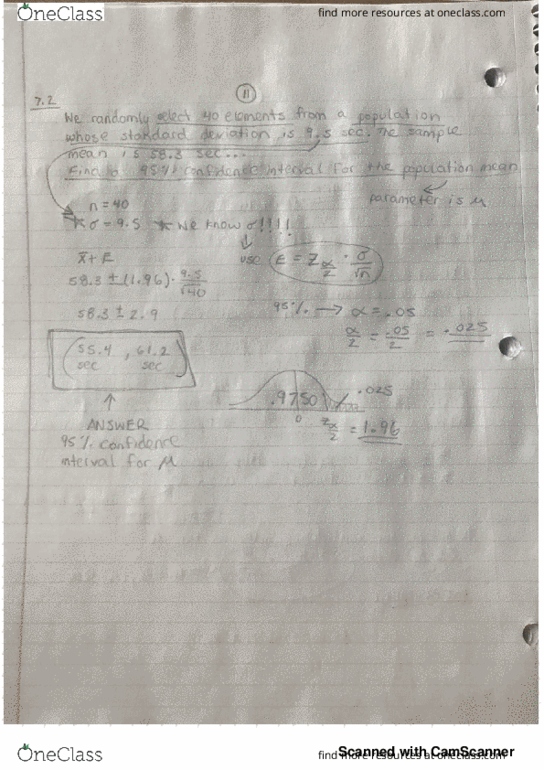 OneClass
find more resources at oneclass.com
11
7.2
We randomly select 40 elements from a population
whose standard deviation is 9.5 sec. The sample
mean is 58.3 sec...
Find a 95% confidence interval for the population mean
parameter is μ
n = 40
σ = 9.5 We know σ!!!!
use E = Zα/2 · σ/√n
x̄ ± E
58.3 ± (1.96) · 9.5/√40
58.3 ± 2.9
95% → α = .05
α/2 = .05/2 = .025
(55.4 sec, 61.2 sec)
.9750 .025
0
Zα/2 = 1.96
ANSWER
95% confidence
interval for μ
OneClass
find more resources at oneclass.com
Scanned with CamScanner